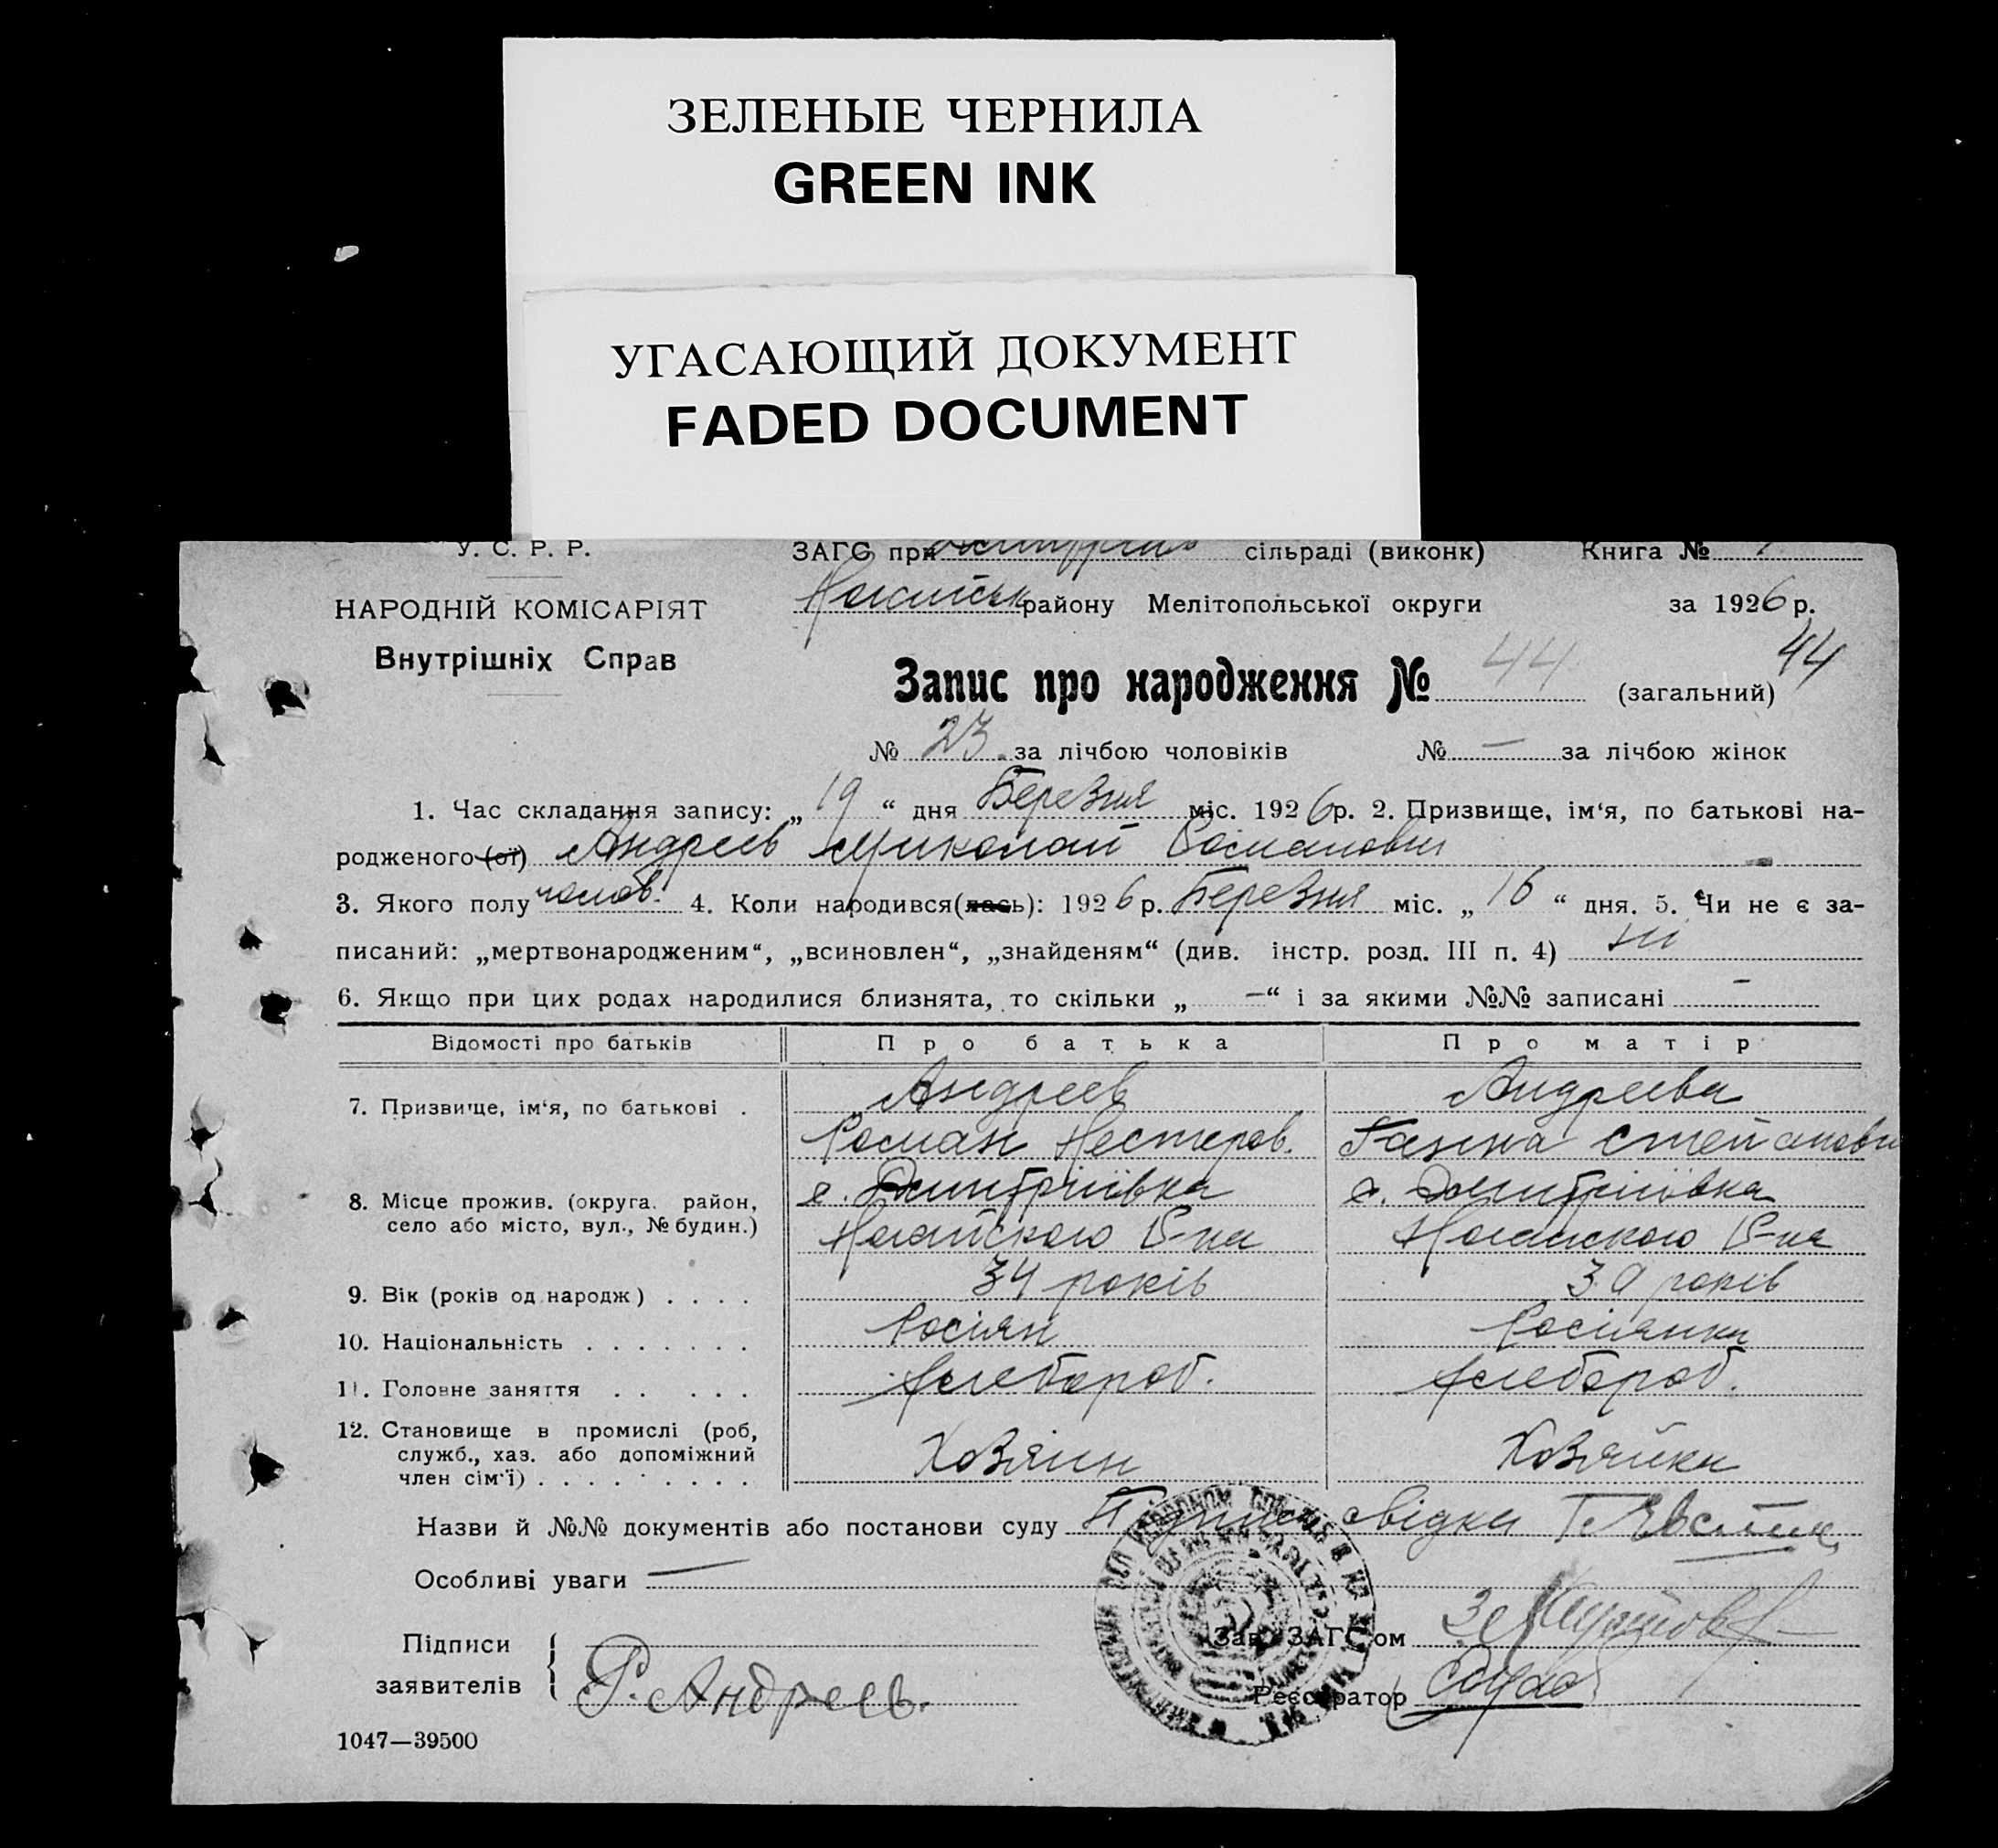 ЗЕЛЕНЫЕ ЧЕРНИЛА
GREEN INK
УГАСАЮЩИЙ ДОКУМЕНТ
FADED DOCUMENT
У. С. Р. Р.
ЗАГС при сільраді (виконк) Книга №
НАРОДНІЙ КОМІСАРІЯТ
Внутрішніх Справ
району Мелітопольської округи за 1926 р.
Запис про народження № 44 (загальний) 44
№ 23 за лічбою чоловіків № — за лічбою жінок
1. Час складання запису: „ 19 “ дня Березня міс. 1926 р. 2. Призвище, ім‘я, по батькові на-
родженого (ої) Андреев Миколай Романович
3. Якого полу чолов. 4. Коли народився(лась): 1926 р. Березня міс. „ 16 “ дня. 5. Чи не є за-
писаний: „мертвонародженим“, „всиновлен“, „знайденям“ (див. інстр. розд. III п. 4) ні
6. Якщо при цих родах народилися близнята, то скільки „ — “ і за якими №№ записані —
Відомості про батьків Про батька Про матір
7. Призвище, ім‘я, по батькові . Андреев Андреева
Роман Нестеров. Ганна Степанови
8. Місце прожив. (округа. район, с. Дмитріївка с. Дмитріївка
село або місто, вул., № будин.) Ногайского Р-на Ногайского Р-на
9. Вік (років од народж) . . . . 34 років 39 років
10. Національність . . . . . . . Росіян Росіянка
11. Головне заняття . . . . . Хлебороб. Хлебороб.
12. Становище в промислі (роб, 
служб., хаз. або допоміжний Ховяин Ховяйка
член сім‘ї) . . . . . . . . .
Назви й №№ документів або постанови суду свідка Г.
Особливі уваги —
Підписи
заявителів Р. Андреев.
Зав. ЗАГС‘ом
Реєстратор
1047—39500